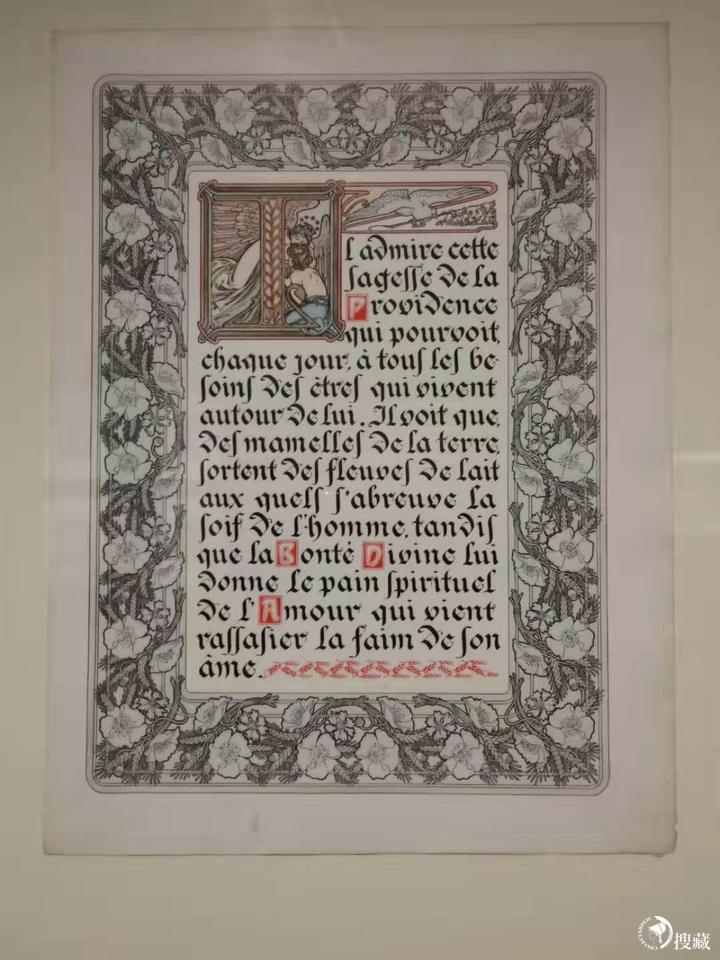 Il admire cette
sagesse de la
Providence
qui pourvoit,
chaque jour, à tous les be-
soins des êtres qui vivent
autour de lui. Il voit que,
des mamelles de la terre,
sortent des fleuves de lait
aux quels s'abreuve la
soif de l'homme, tandis
que la Bonté Divine lui
donne le pain spirituel
de l'Amour qui vient
rassasier la faim de son
âme.
COLLECTAHOLIC
搜藏